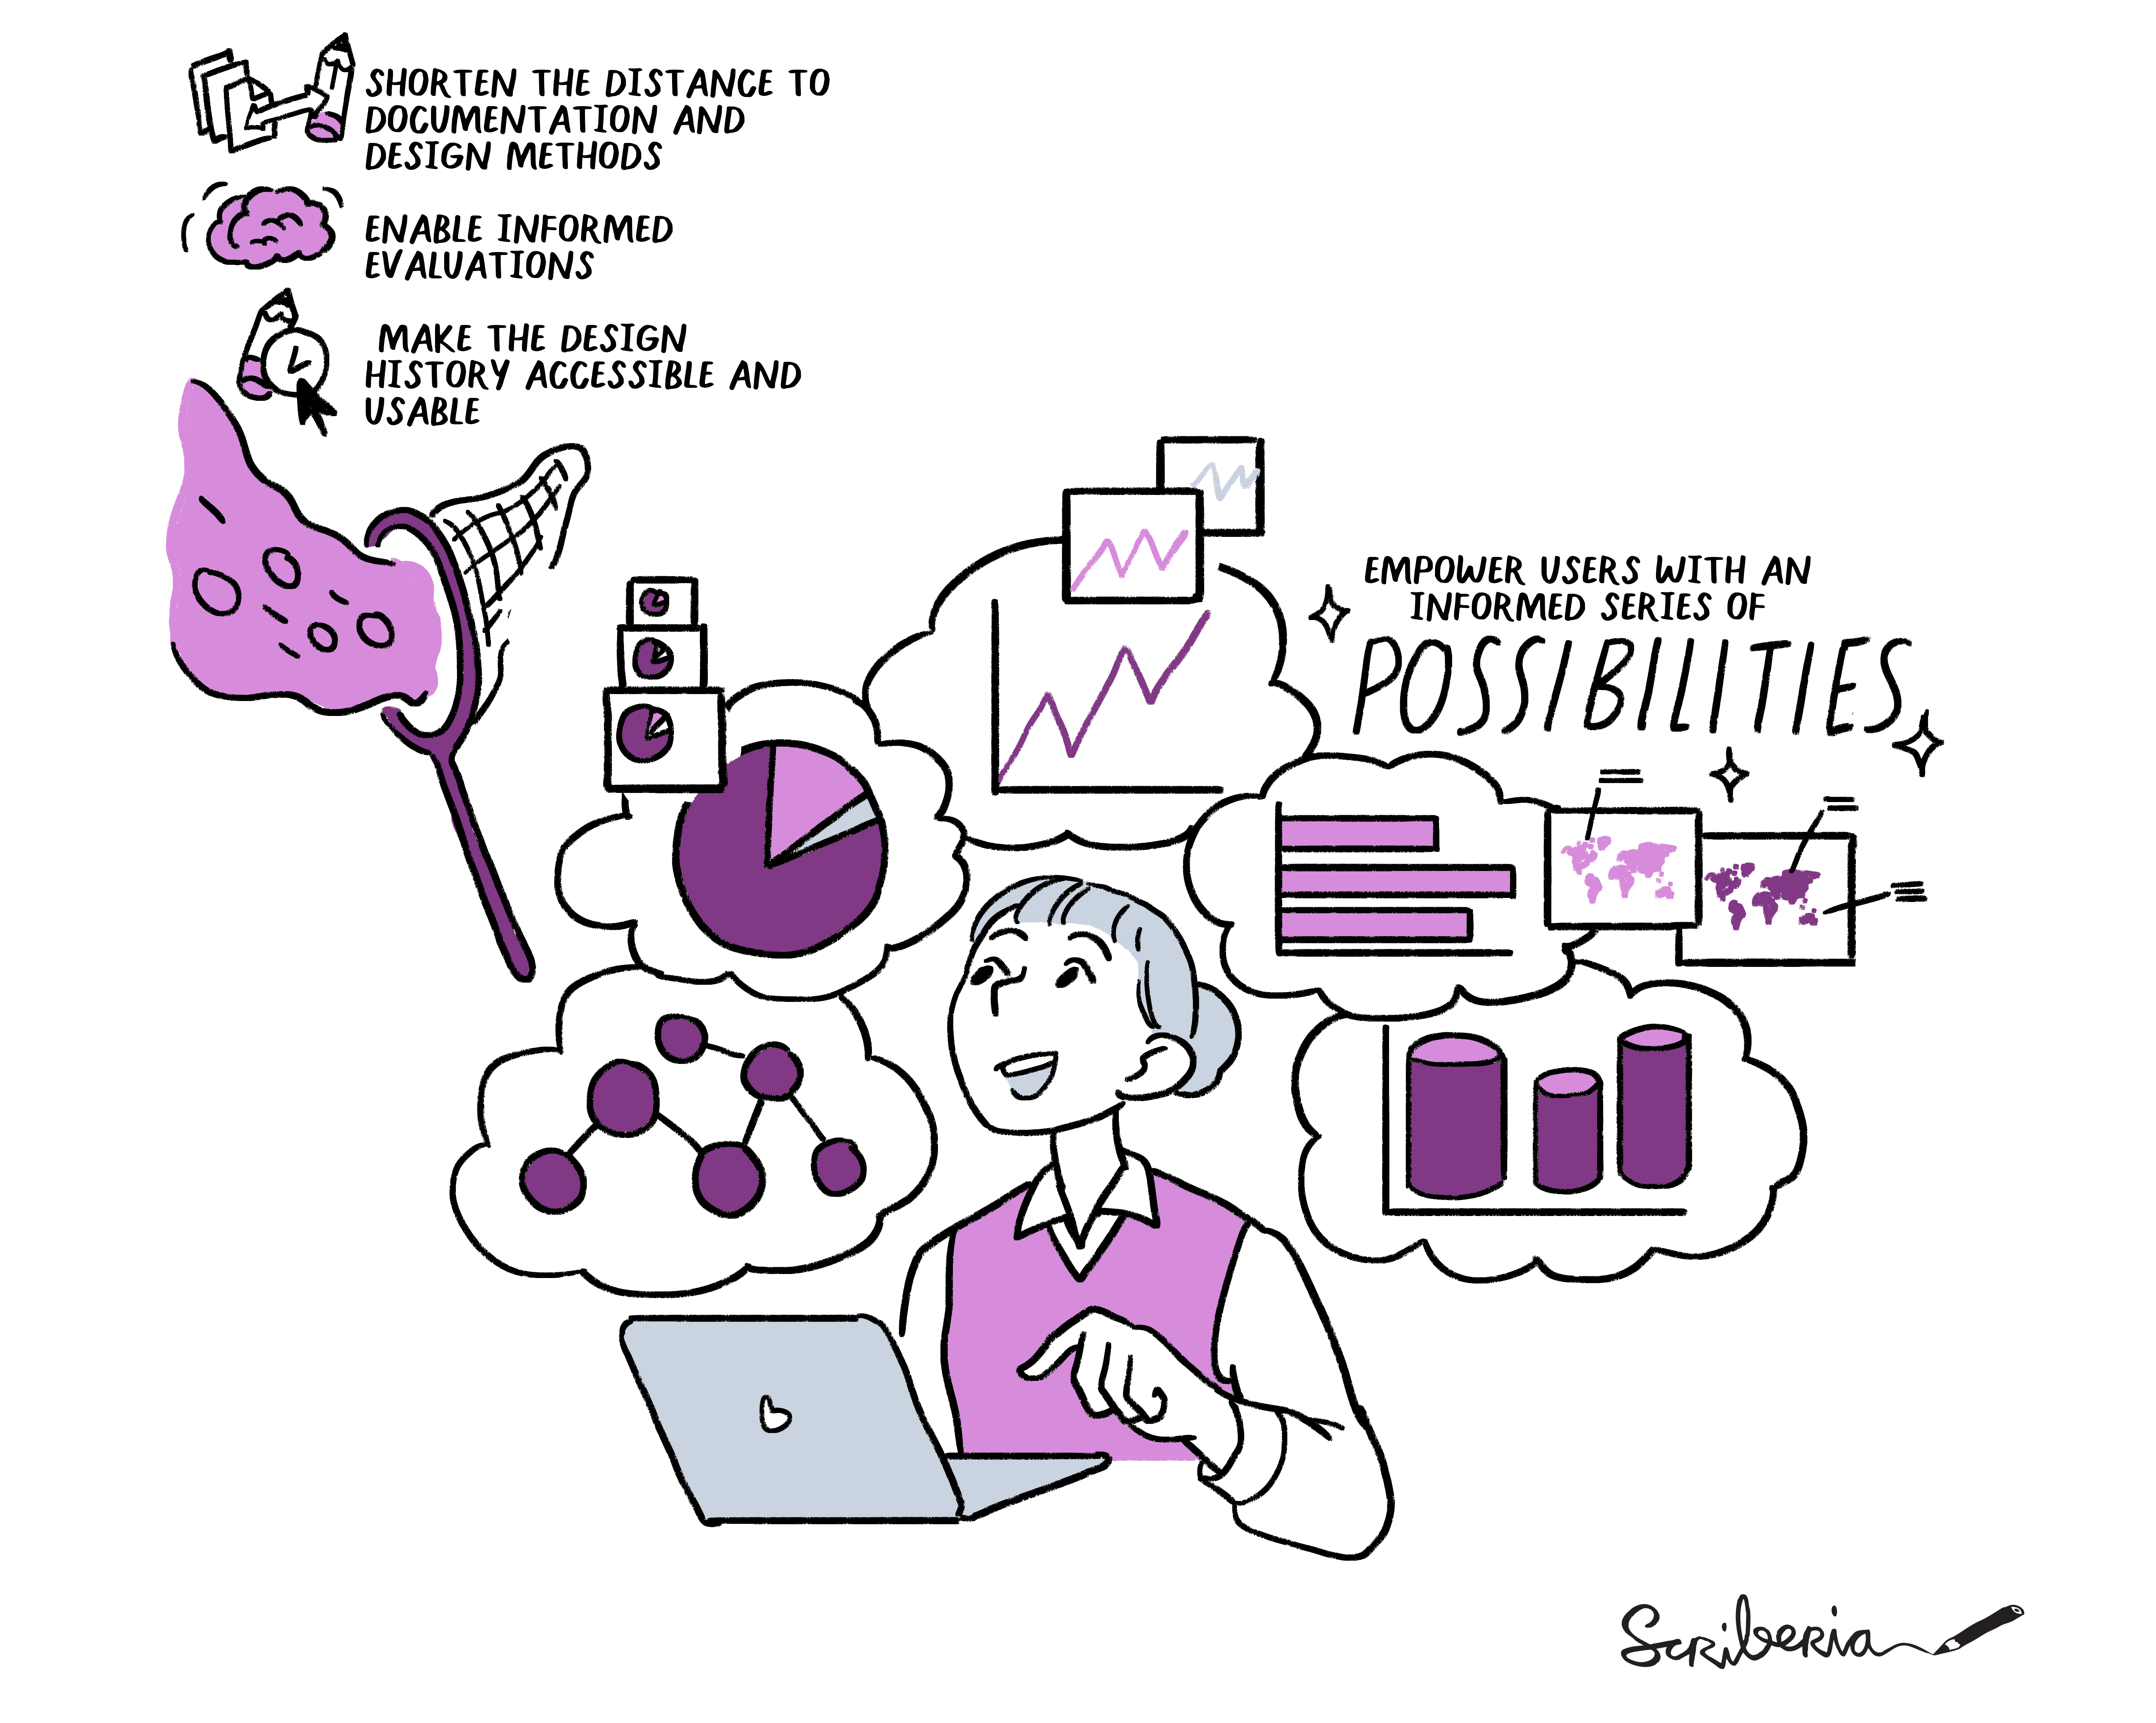 SHORTEN THE DISTANCE TO
DOCUMENTATION AND
DESIGN METHODS
ENABLE INFORMED
EVALUATIONS
MAKE THE DESIGN
HISTORY ACCESSIBLE AND
USABLE
EMPOWER USERS WITH AN
INFORMED SERIES OF
POSSIBILITIES
Scriberia